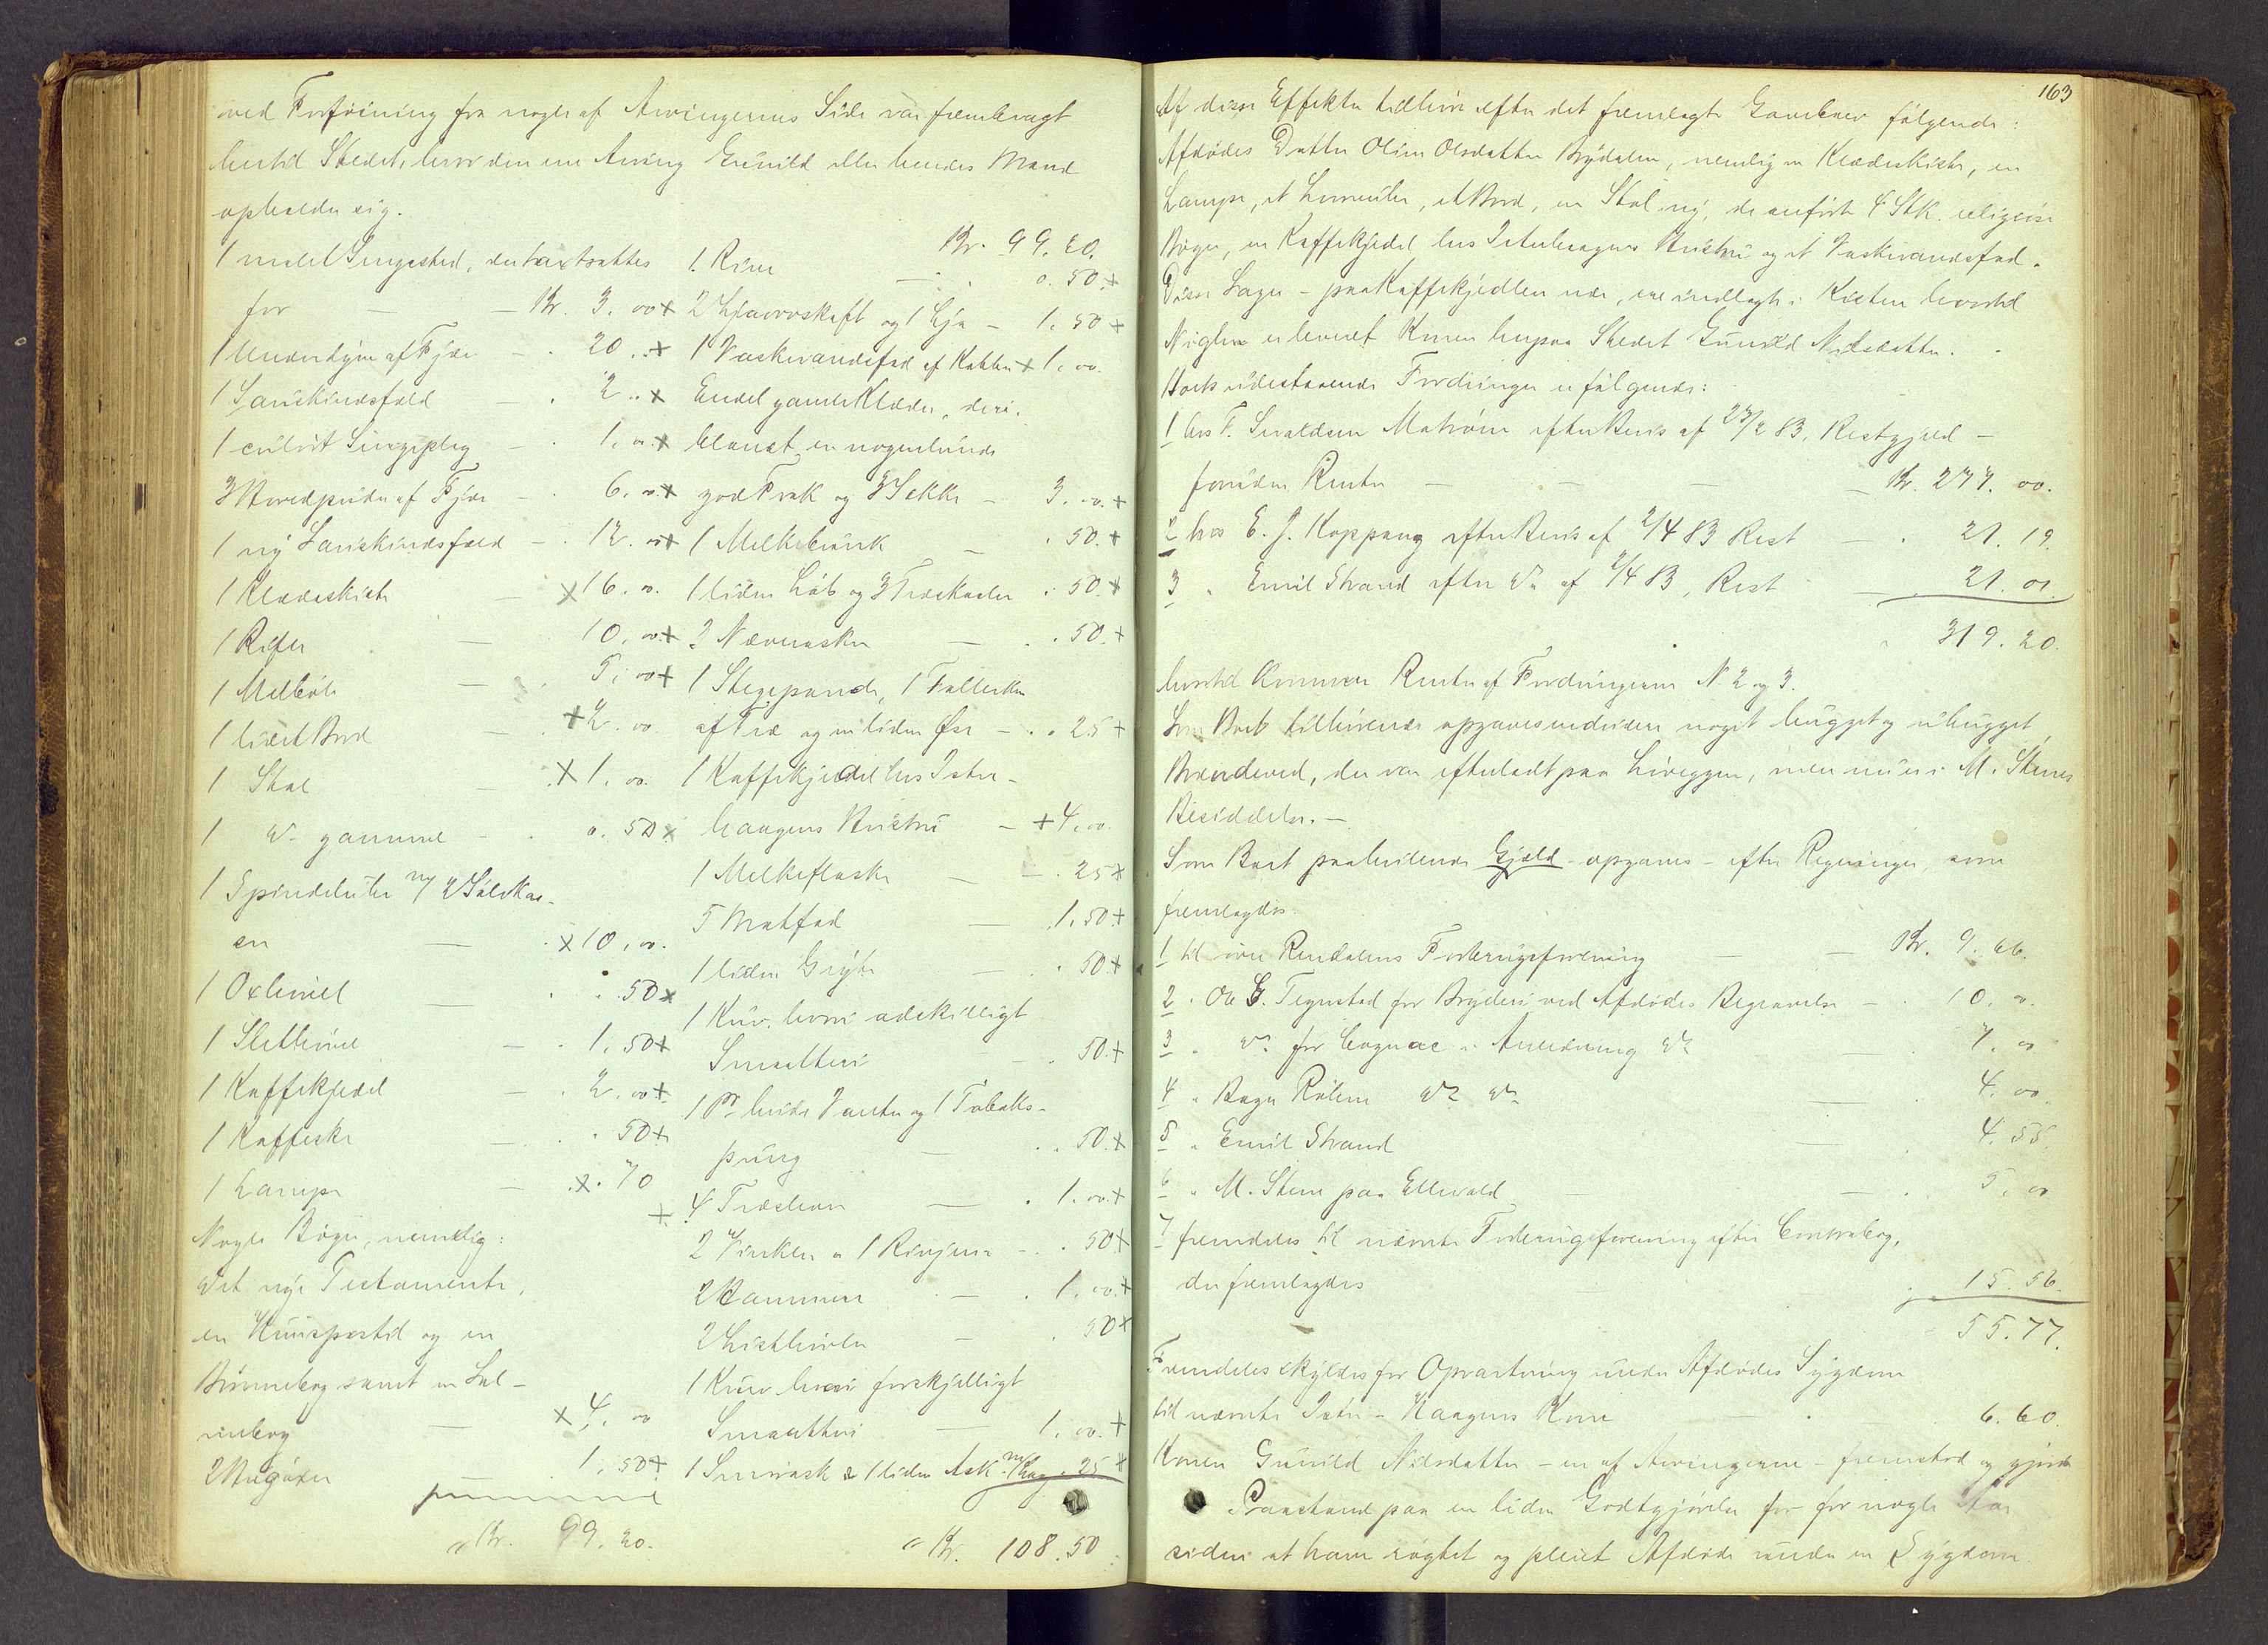 ved Forføining fra nogle af Arvingernes Side var frembragt
hertil Stedet, hvor den ene Arving Gunild eller hendes Mand
opholder sig.
1 malet Sengested, der taxtsattes
for Kr. 3.00 +
1 Underdyne af Fjær 20 .. +
1 Saueskindsfæld 2 .. +
1 Sengeplag 1.00 +
3 Hovedpuder af Fjær 6.00 +
1 ny Saueskindsfæld 12.00 +
1 Klædeskiste + 16.00
1 Rifle 10.00 +
1 Melbøle 5.00 +
1 lidet Bord + 2.00
1 Stol + 1.00
1 do gammel 0.50 +
1 Spindehjul m/ 2
en + 10.00
1 Oxehøvel .50 +
1 Sletthøvel 1.50 +
1 Kaffekjedel 2.00 +
1 Kaffeske .50 +
1 Lampe + .70
Nogle Bøger, nemlig:
det nye Testamente,
en Huuspostil og en
Bønnebog samt en Sal-
mebog + 4.00
2 Hugøxer 1.50 +
Kr. 99.20.
Kr. 99.20.
1 River 0.50 +
2 Ljaaorvskaft og 1 Ljaa 1.50 +
1 Vaskevandsfad af Kobber + 1.00
Endel gamle Klæder, deri
blandt en nogenlunde
god Frak og 3 Sekke 3.00 +
1 Melkebunk .50 +
1 liden Løb og 3 Træskaaler .50 +
2 Næverasker .50 +
1 Stegepande, 1 Tallerken
af Træ og en liden Øse .25 +
1 Kaffekjedel hos Ister-
haagens Hustru + 4.00
1 Melkeflaske .25 +
5 Matfad 1.50 +
1 liden Gryte .50 +
1 Kurv, hvori adskilligt
Smaatteri .50 +
1 Pr. hvide Vanter og 1 Tobaks-
pung .50 +
+ 4 Træskeer 1.00 +
2 Vinkler & 1 Rivjern .50 +
2 Hammere 1.00 +
2 Listhøvler .50 +
1 Kurv hvori forskjelligt
Smaatteri 1.00 +
1 Smørask & 1 liden Ask m/ Lag .25 +
Kr. 108.50
163
Af disse Effekter tilhøre efter det fremlagte Gavebrev følgende:
Afdødes Datter Oline Olsdatter Brydalen, nemlig en Klædeskiste, en
Lampe, et Spindehjul, et Bord, en Stol ny, de anførte 4 Stk. religiøse
Bøger, en Kaffekjedel hos Isterhaagens Hustru og et Vaskevandsfad.
Disse Sager – paa Kaffekjedlen nær, ere indlagte i Kisten hvortil
Nøglen er leveret Konen herpaa Stedet Gunild Nilsdatter.
Boets udestaaende Fordringer er følgende:
1 hos F. Sivaldsen Matrøen efter Bevis af 27/2 83, Restgjæld –
foruden Renter Kr. 277.00.
2 hos E. J. Koppang efter Bevis af 2/4 83 Rest 21.19.
3 " Emil Strand efter do af 2/4 83, Rest 21.01.
319.20.
hvortil kommer Renter af Fordringerne N 2 og 3.
Som Boet tilhørende opgaves endvidere noget hugget og uhugget
Brændeved, der var efterladt paa Løveggen, men nu er i M. Stenes
Besiddelse. –
Som Boet paahvilende Gjæld opgaves – efter Regninger, som
fremlagdes:
1 til øvre Rendalens Forbrugsforening Kr. 9.66.
2 " Ole E. Tegnstad for Bryderi ved Afdødes Begravelse 10.00
3 " do for Cognac i Anledning do 7.00
4 " Røilen do do 4.00
5 " Emil Strand 4.55
6 " M. Stene paa Ellevold 5.00
7 fremdeles til nævnte Forbrugsforening efter Contrabog,
der fremlagdes 15.56.
55.77.
Fremdeles skyldes for Opvartning under Afdødes Sygdom
til nævnte Ister-Haagens Kone 6.60.
Konen Gunild Nilsdatter – en af Arvingerne – fremstod og gjorde
Paastand paa en liden Godtgjørelse for for nogle Aar
siden at have røgtet og pleiet Afdøde under en Sygdom